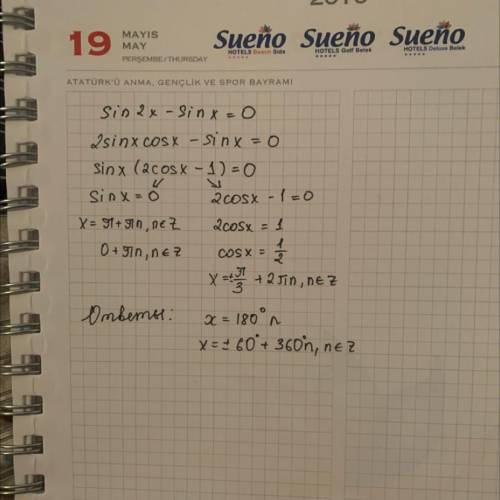 19 MAYIS
MAY
PERŞEMBE/THURSDAY
Sueño
HOTELS Beach Side
Sueño
HOTELS Golf Belek
Sueño
HOTELS Deluxe Belek
ATATÜRK'Ü ANMA, GENÇLİK VE SPOR BAYRAMI
sin2x - sinx = 0
2sinxcosx - sinx = 0
sinx(2cosx - 1) = 0
sinx = 0 2cosx - 1 = 0
x = π + πn, n∈Z 2cosx = 1
0 + πn, n∈Z cosx = 1/2
x = ±π/3 + 2πn, n∈Z
Ответы: x = 180° n
x = ±60° + 360°n, n∈Z